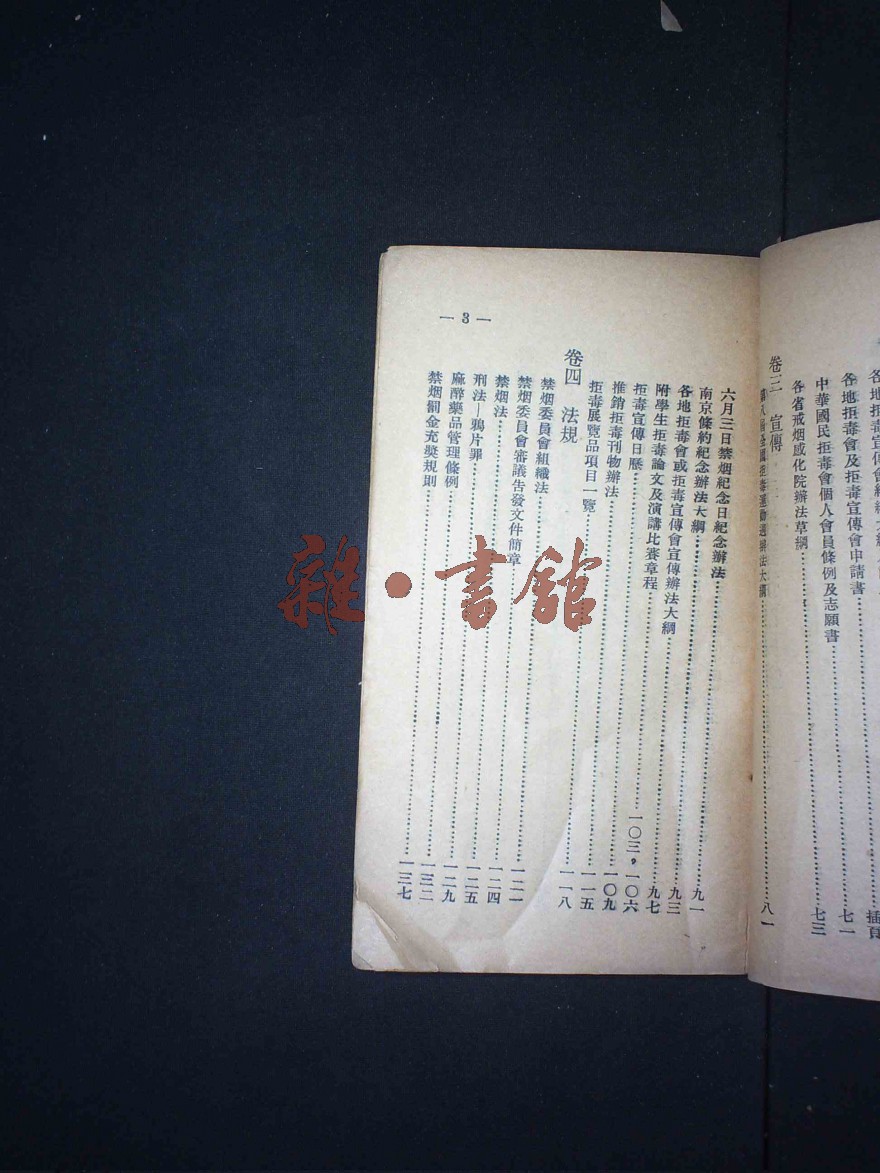 各地拒毒宣傳會組織大綱……插頁
各地拒毒會及拒毒宣傳會申請書……插頁
中華國民拒毒會個人會員條例及志願書……七一
各省戒烟感化院辦法草綱……七三
卷三 宣傳
第八屆全國拒毒運動週辦法大綱……八一
六月三日禁烟紀念日紀念辦法……九一
南京條約紀念辦法大綱……九三
各地拒毒會或拒毒宣傳會宣傳辦法大綱……九七
附學生拒毒論文及演講比賽章程……一〇三，一〇六
拒毒宣傳日曆……一〇九
推銷拒毒刊物辦法……一一五
拒毒展覽品項目一覽……一一八
卷四 法規
禁烟委員會組織法……一二一
禁烟委員會審議告發文件簡章……一二四
禁烟法……一二五
刑法—鴉片罪……一二九
麻醉藥品管理條例……一三二
禁烟罰金充獎規則……一三七
— 3 —
雜·書館